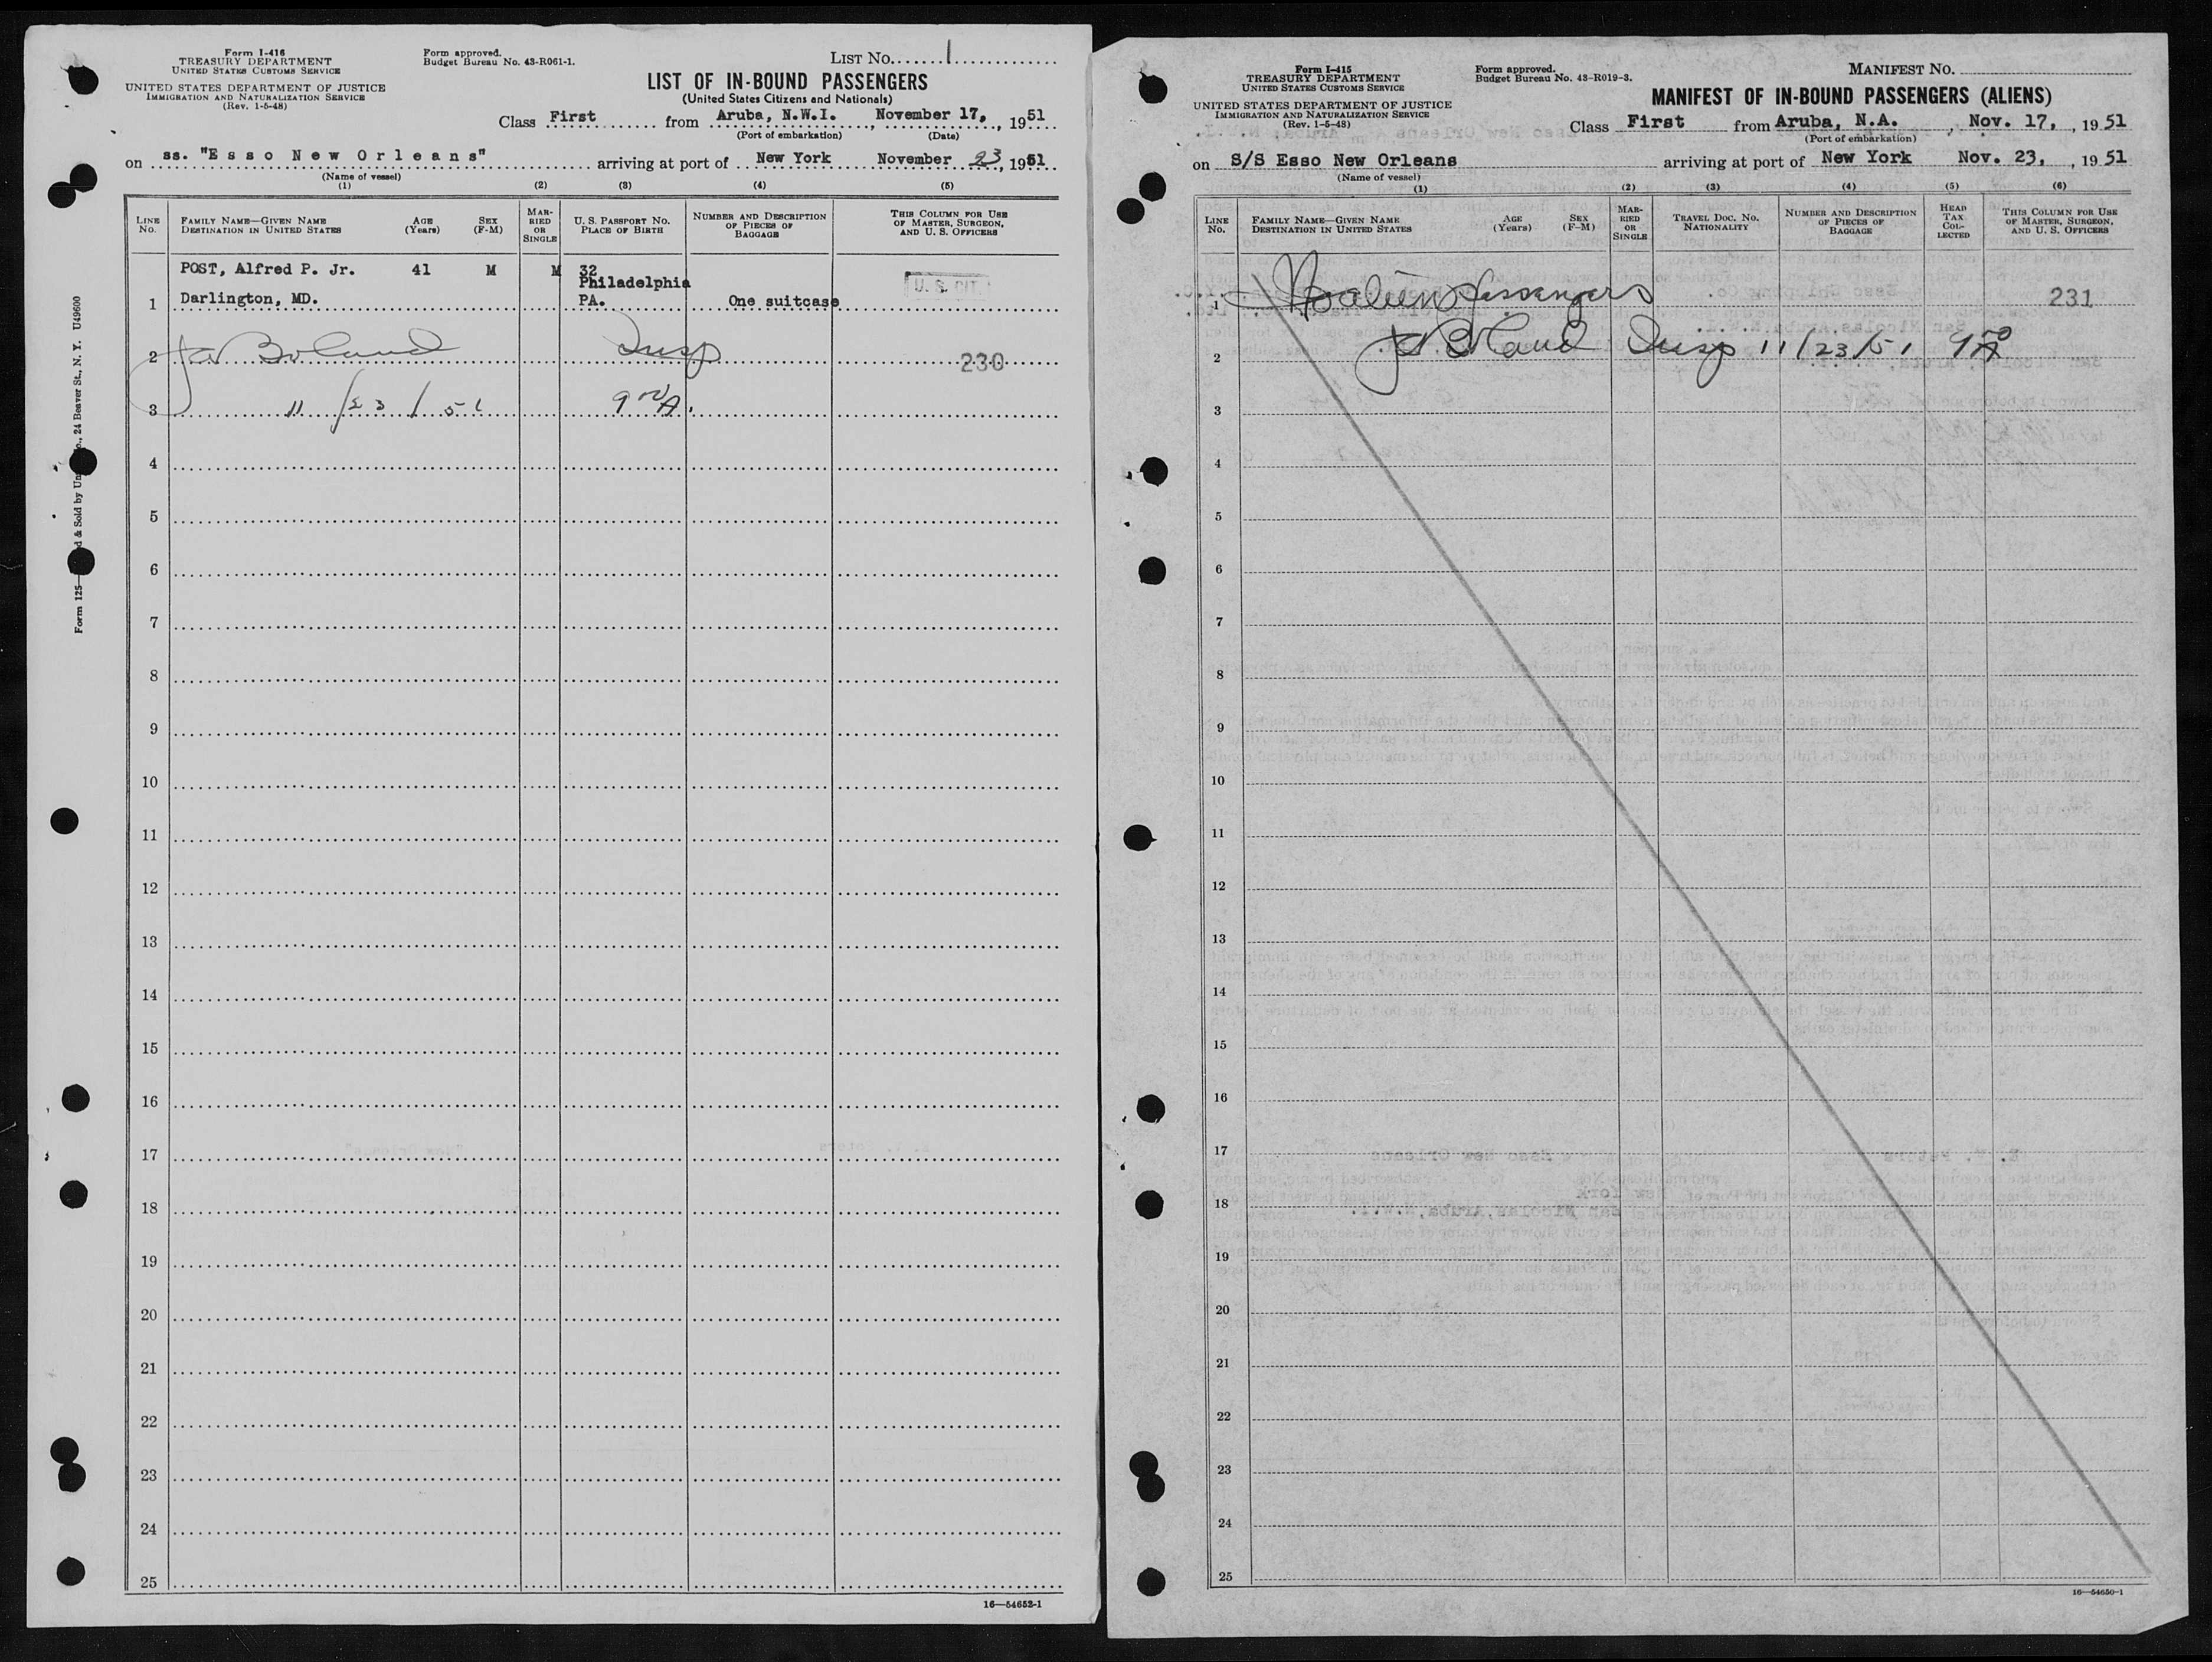 Form I-416
TREASURY DEPARTMENT
UNITED STATES CUSTOMS SERVICE
UNITED STATES DEPARTMENT OF JUSTICE
IMMIGRATION AND NATURALIZATION SERVICE
(Rev. 1-5-48)
Form approved.
Budget Bureau No. 43-R061-1.
LIST NO. 1
LIST OF IN-BOUND PASSENGERS
(United States Citizens and Nationals)
Class First from Aruba, N.W.I. , November 17, , 1951
(Port of embarkation) (Date)
on ss. "Esso New Orleans" arriving at port of New York November 23, 1951
(Name of vessel)
(1) (2) (3) (4) (5)
LINE NO. FAMILY NAME—GIVEN NAME DESTINATION IN UNITED STATES AGE (Years) SEX (F-M) MARRIED OR SINGLE U. S. PASSPORT NO. PLACE OF BIRTH NUMBER AND DESCRIPTION OF PIECES OF BAGGAGE THIS COLUMN FOR USE OF MASTER, SURGEON, AND U. S. OFFICERS
POST, Alfred P. Jr. 41 M M 32
Philadelphia
1 Darlington, MD. PA. One suitcase U. S. CIT.
2 Boland Insp 230
3 11/23/51 9 00 A.
4
5
6
7
8
9
10
11
12
13
14
15
16
17
18
19
20
21
22
23
24
25
16—54652-1
Form 125— d & Sold by Un o., 24 Beaver St., N. Y. U49600
Form I-415
TREASURY DEPARTMENT
UNITED STATES CUSTOMS SERVICE
UNITED STATES DEPARTMENT OF JUSTICE
IMMIGRATION AND NATURALIZATION SERVICE
(Rev. 1-5-48)
Form approved.
Budget Bureau No. 43-R019-3.
MANIFEST NO.
MANIFEST OF IN-BOUND PASSENGERS (ALIENS)
Class First from Aruba, N.A. , Nov. 17, , 1951
(Port of embarkation)
on S/S Esso New Orleans arriving at port of New York Nov. 23, , 1951
(Name of vessel)
(1) (2) (3) (4) (5) (6)
LINE NO. FAMILY NAME—GIVEN NAME DESTINATION IN UNITED STATES AGE (Years) SEX (F-M) MARRIED OR SINGLE TRAVEL DOC. NO. NATIONALITY NUMBER AND DESCRIPTION OF PIECES OF BAGGAGE HEAD TAX COLLECTED THIS COLUMN FOR USE OF MASTER, SURGEON, AND U. S. OFFICERS
1 No alien passengers 231
2 Boland Insp 11/23/51 9 00 A
3
4
5
6
7
8
9
10
11
12
13
14
15
16
17
18
19
20
21
22
23
24
25
16—54650-1